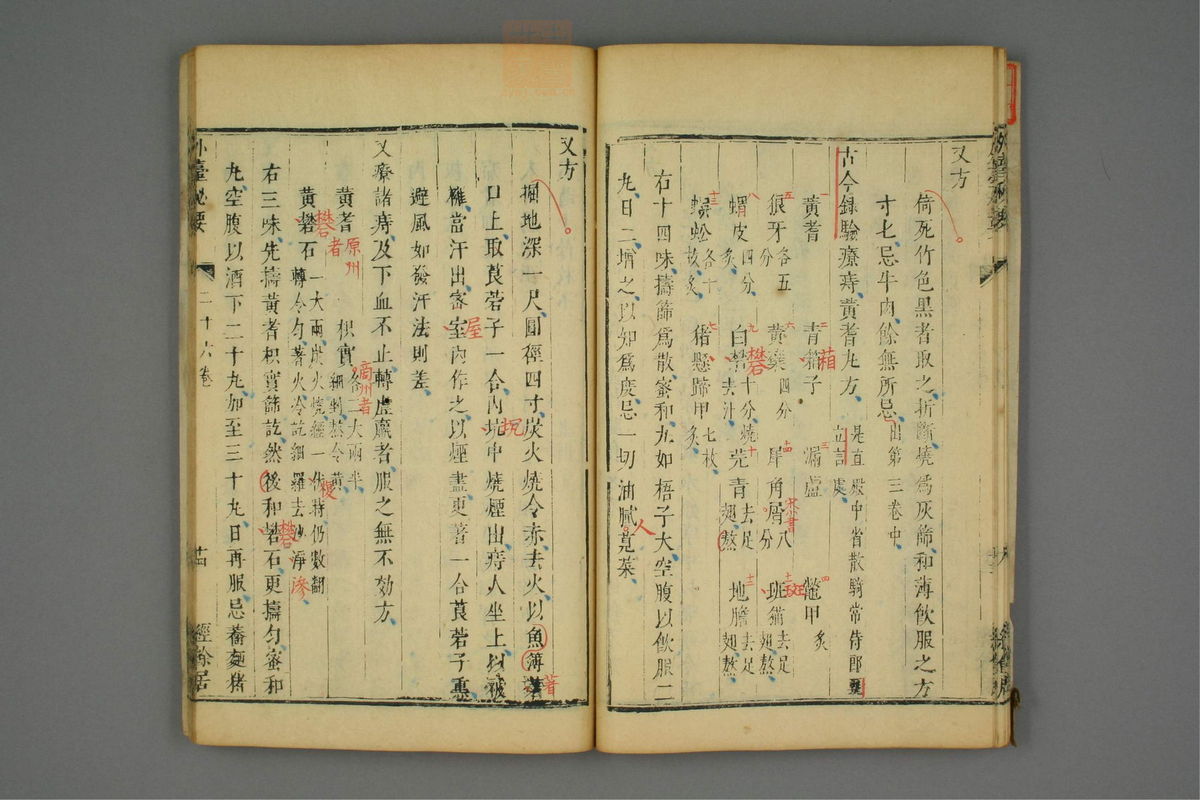 又方
倚死竹色黑者取之折斷燒爲灰篩和薄飲服之方
寸七忌牛肉餘無所忌出第三卷中
古今錄驗療痔黃耆丸方是直殿中省散騎常侍郎甄立言處
黃耆 青箱子 漏盧 鼈甲炙
狼牙各五分 黃蘗四分 犀角屑八分 斑猫去足翅熬
蝟皮四分炙 白礬十分燒去汁 芫青去足翅熬 地膽去足翅熬
蜈蚣各十枚炙 猪懸蹄甲七枚炙
右十四味擣篩爲散蜜和丸如梧子大空腹以飲服二
丸日二增之以知爲度忌一切油膩莧菜
又方
掘地深一尺圓徑四寸炭火燒令赤去火以魚簿著
口上取莨菪子一合內坑中燒煙出痔人坐上以被
擁當汗出密室內作之以煙盡更著一合莨菪子熏
避風如發汗法則差
又療諸痔及下血不止轉虛羸者服之無不効方
黃耆 枳實各三大兩半細剉熬令黃
黃礬石一大兩炭火燒經一伏時仍數翻轉令勻著火冷訖細羅去沙淨
右三味先擣黃耆枳實篩訖然後和礬石更擣勻蜜和
丸空腹以酒下二十丸加至三十丸日再服忌蕎麵猪
外臺秘要 二十六卷 經餘居
原州者
商州者
屋
著
礬
人